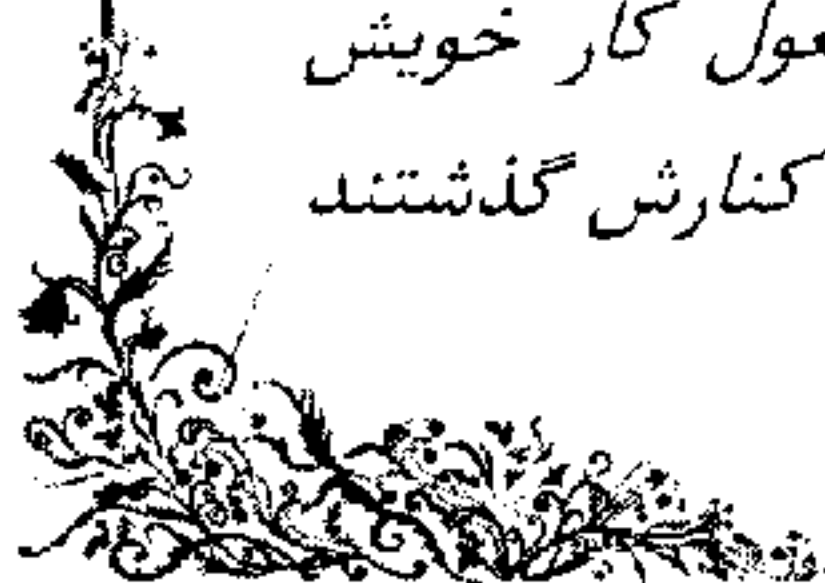 کار خویش
کنارش گذشتند